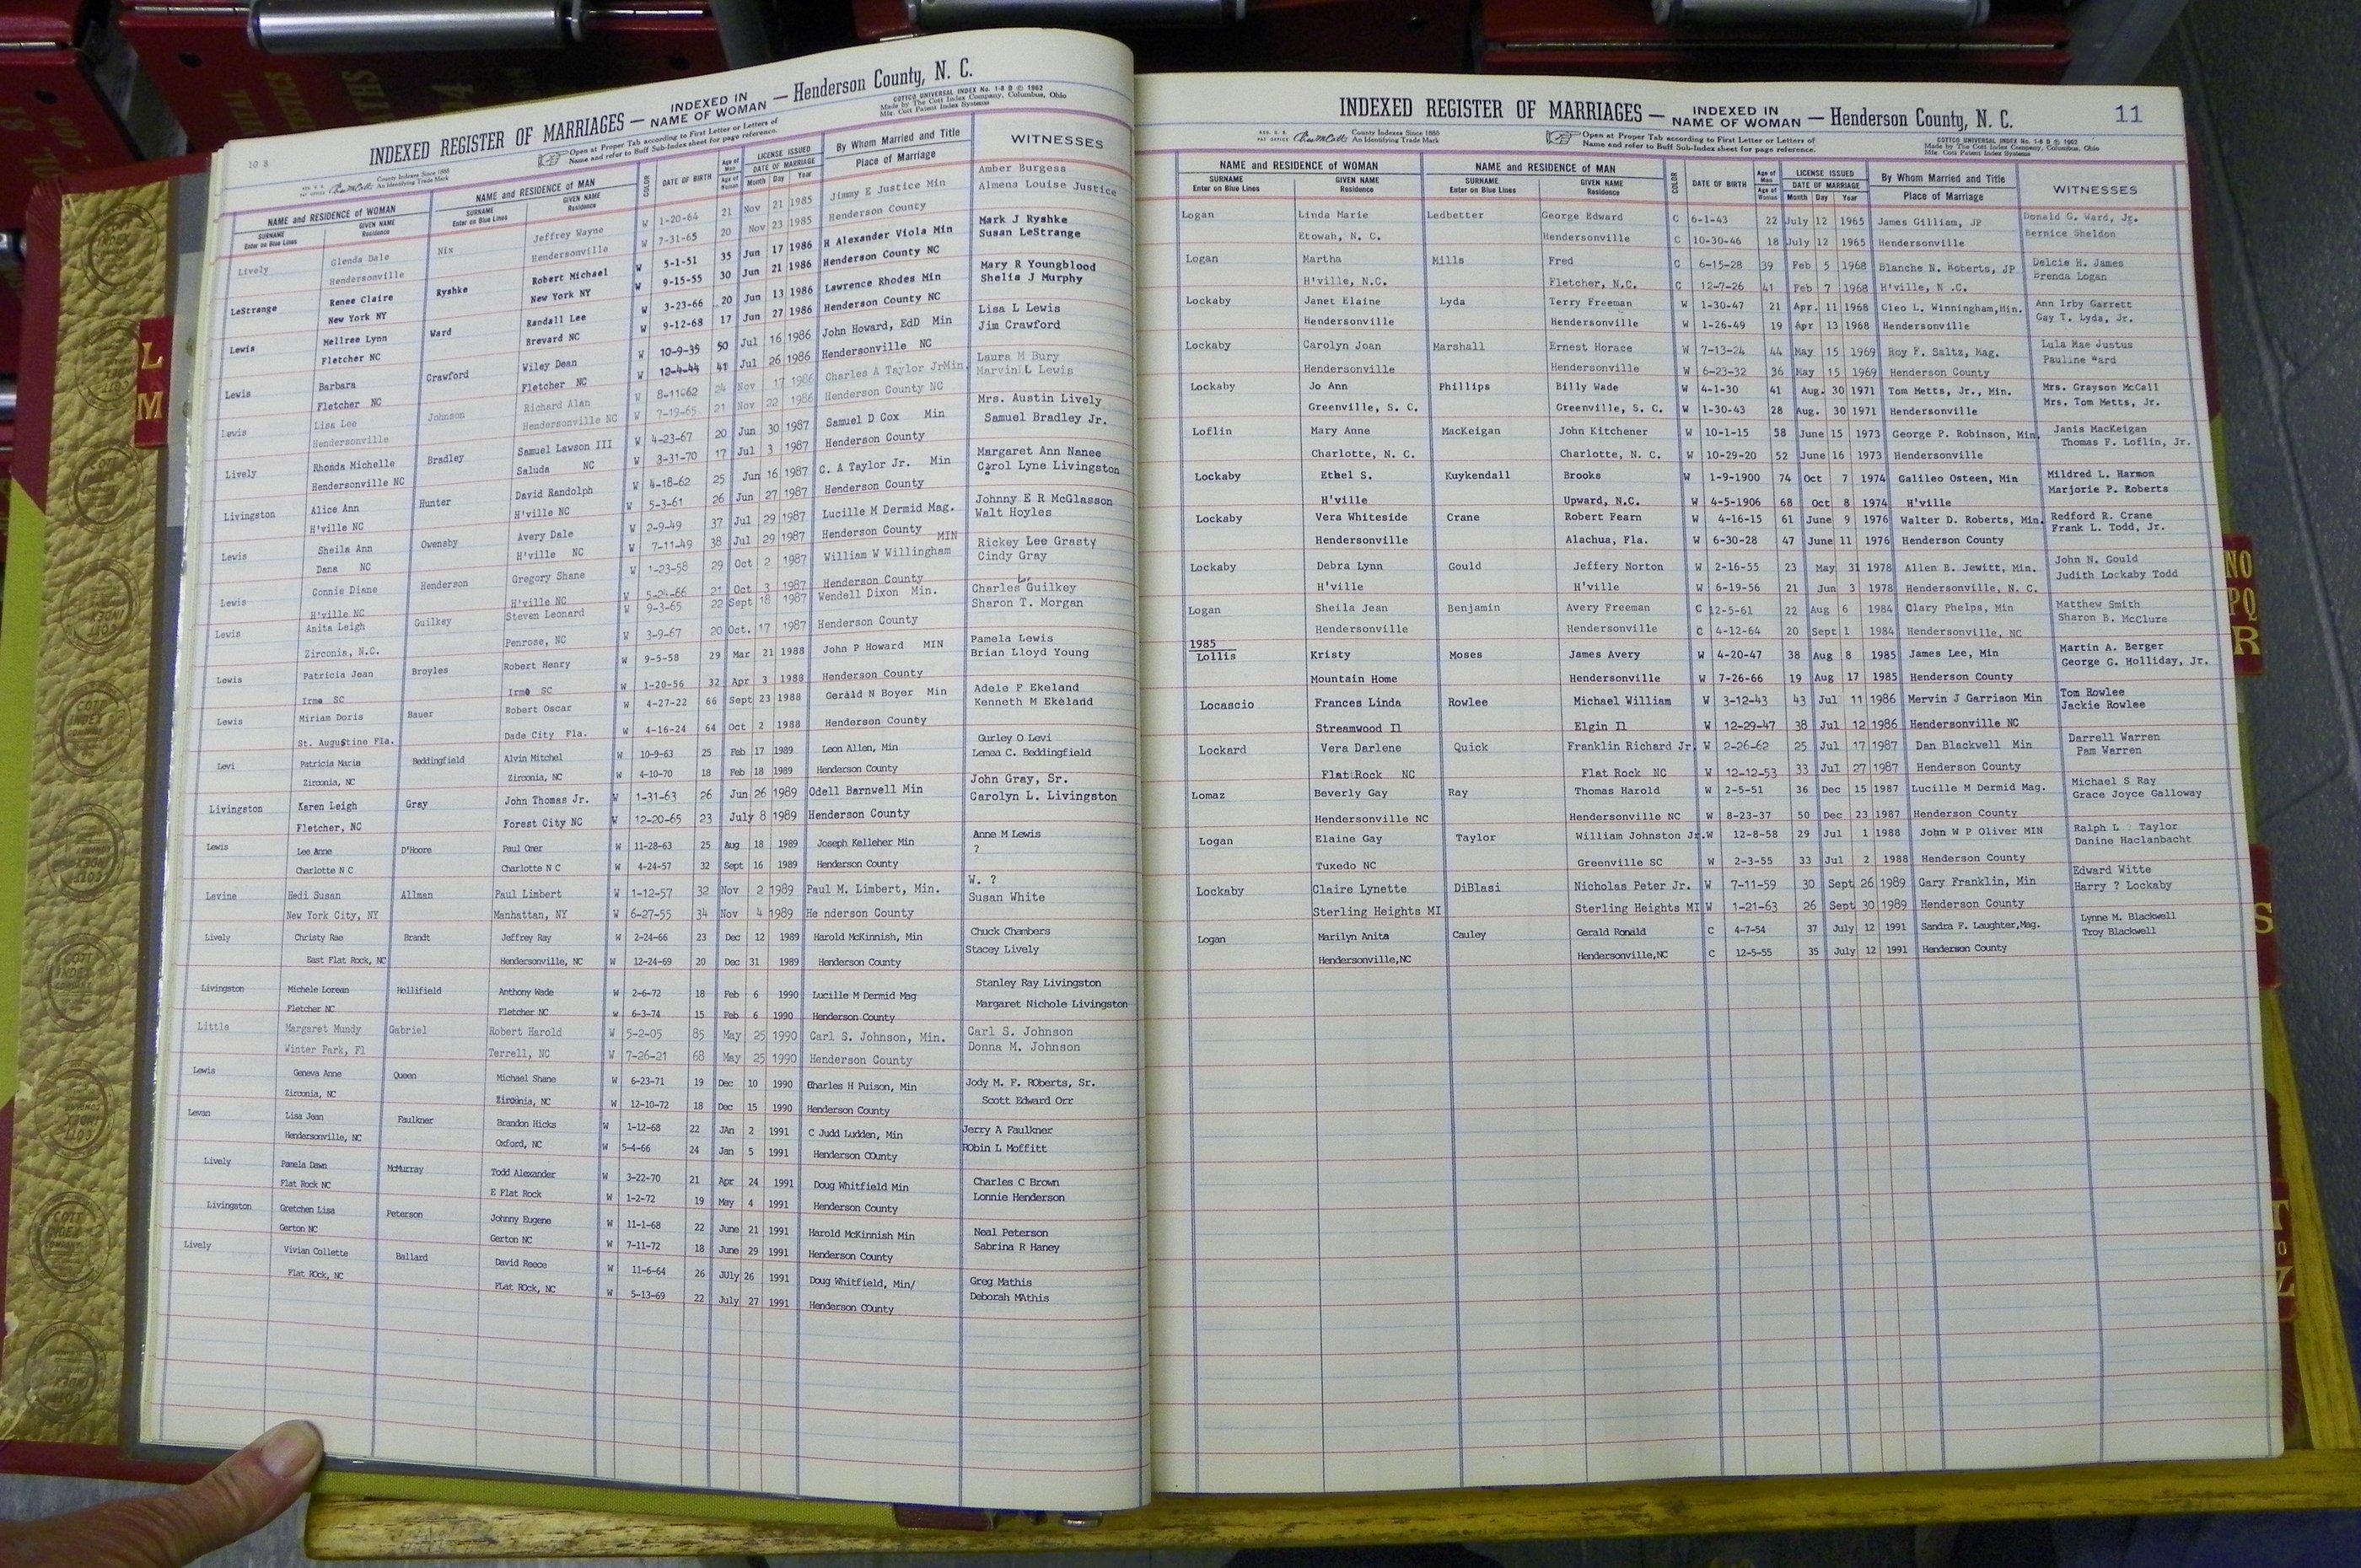 10 B
INDEXED REGISTER OF MARRIAGES — INDEXED IN NAME OF WOMAN — Henderson County, N. C.
County Indexes Since 1888
An Identifying Trade Mark
Open at Proper Tab according to First Letter or Letters of
Name and refer to Buff Sub-Index sheet for page reference.
COTTCO UNIVERSAL INDEX No. 1-8 D © 1962
Made by The Cott Index Company, Columbus, Ohio
Mfg. Cott Patent Index Systems
NAME and RESIDENCE OF WOMAN NAME and RESIDENCE OF MAN COLOR DATE OF BIRTH Age of Man LICENSE ISSUED By Whom Married and Title WITNESSES
SURNAME Enter on Blue Lines GIVEN NAME Residence SURNAME Enter on Blue Lines GIVEN NAME Residence Age of Woman DATE OF MARRIAGE Month Day Year Place of Marriage
Lively Glenda Dale Nix Jeffrey Wayne W 1-20-64 21 Nov 21 1985 Jimmy E Justice Min Amber Burgess
Hendersonville Hendersonville W 7-31-65 20 Nov 23 1985 Henderson County Almena Louise Justice
LeStrange Renee Claire Ryshke Robert Michael W 5-1-51 35 Jun 17 1986 R Alexander Viola Min Mark J Ryshke
New York NY New York NY W 9-15-55 30 Jun 21 1986 Henderson County NC Susan LeStrange
Lewis Mellree Lynn Ward Randall Lee W 3-23-66 20 Jun 13 1986 Lawrence Rhodes Min Mary R Youngblood
Fletcher NC Brevard NC W 9-12-68 17 Jun 27 1986 Henderson County NC Shelia J Murphy
Lewis Barbara Crawford Wiley Dean W 10-9-35 50 Jul 16 1986 John Howard, EdD Min Lisa L Lewis
Fletcher NC Fletcher NC W 12-4-44 41 Jul 26 1986 Hendersonville NC Jim Crawford
Lewis Lisa Lee Johnson Richard Alan W 8-11-62 24 Nov 17 1986 Charles A Taylor JrMin Laura M Bury
Hendersonville Hendersonville NC W 7-19-65 21 Nov 22 1986 Henderson County NC Marvin L Lewis
Lively Rhonda Michelle Bradley Samuel Lawson III W 4-23-67 20 Jun 30 1987 Samuel D Cox Min Mrs. Austin Lively
Hendersonville NC Saluda NC W 3-31-70 17 Jul 3 1987 Henderson County Samuel Bradley Jr.
Livingston Alice Ann Hunter David Randolph W 4-18-62 25 Jun 16 1987 C. A Taylor Jr. Min Margaret Ann Nanee
H'ville NC H'ville NC W 5-3-61 26 Jun 27 1987 Henderson County Carol Lyne Livingston
Lewis Sheila Ann Owensby Avery Dale W 2-9-49 37 Jul 29 1987 Lucille M Dermid Mag. Johnny E R McGlasson
Dana NC H'ville NC W 7-11-49 38 Jul 29 1987 Henderson County Walt Hoyles
Lewis Connie Diane Henderson Gregory Shane W 1-23-58 29 Oct 2 1987 William W Willingham MIN Rickey Lee Grasty
H'ville NC H'ville NC W 5-24-66 21 Oct 3 1987 Henderson County Cindy Gray
Lewis Anita Leigh Guilkey Steven Leonard W 9-3-65 22 Sept 18 1987 Wendell Dixon Min. Charles Guilkey
Zirconia, N.C. Penrose, NC W 3-9-67 20 Oct. 17 1987 Henderson County Sharon T. Morgan
Lewis Patricia Jean Broyles Robert Henry W 9-5-58 29 Mar 21 1988 John P Howard MIN Pamela Lewis
Irmo SC Irmo SC W 1-20-56 32 Apr 3 1988 Henderson County Brian Lloyd Young
Lewis Miriam Doris Bauer Robert Oscar W 4-27-22 66 Sept 23 1988 Gerald N Boyer Min Adele F Ekeland
St. Augustine Fla. Dade City Fla. W 4-16-24 64 Oct 2 1988 Henderson County Kenneth M Ekeland
Levi Patricia Maria Beddingfield Alvin Mitchel W 10-9-63 25 Feb 17 1989 Leon Allen, Min Gurley O Levi
Zirconia, NC Zirconia, NC W 4-10-70 18 Feb 18 1989 Henderson County Lenea C. Beddingfield
Livingston Karen Leigh Gray John Thomas Jr. W 1-31-63 26 Jun 26 1989 Odell Barnwell Min John Gray, Sr.
Fletcher, NC Forest City NC W 12-20-65 23 July 8 1989 Henderson County Carolyn L. Livingston
Lewis Lee Anne D'Hoore Paul Omer W 11-28-63 25 Aug 18 1989 Joseph Kelleher Min Anne M Lewis
Charlotte N C Charlotte N C W 4-24-57 32 Sept 16 1989 Henderson County ?
Levine Hedi Susan Allman Paul Limbert W 1-12-57 32 Nov 2 1989 Paul M. Limbert, Min. W. ?
New York City, NY Manhattan, NY W 6-27-55 34 Nov 4 1989 He nderson County Susan White
Lively Christy Rae Brandt Jeffrey Ray W 2-24-66 23 Dec 12 1989 Harold McKinnish, Min Chuck Chambers
East Flat Rock, NC Hendersonville, NC W 12-24-69 20 Dec 31 1989 Henderson County Stacey Lively
Livingston Michele Lorean Hollifield Anthony Wade W 2-6-72 18 Feb 6 1990 Lucille M Dermid Mag Stanley Ray Livingston
Fletcher NC Fletcher NC w 6-3-74 15 Feb 6 1990 Henderson County Margaret Nichole Livingston
Little Margaret Mundy Gabriel Robert Harold W 5-2-05 85 May 25 1990 Carl S. Johnson, Min. Carl S. Johnson
Winter Park, Fl Terrell, NC W 7-26-21 68 May 25 1990 Henderson County Donna M. Johnson
Lewis Geneva Anne Queen Michael Shane W 6-23-71 19 Dec 10 1990 Charles H Puison, Min Jody M. F. ROberts, Sr.
Zirconia, NC Zirconia, NC W 12-10-72 18 Dec 15 1990 Henderson County Scott Edward Orr
Levan Lisa Jean Faulkner Brandon Hicks W 1-12-68 22 JAn 2 1991 C Judd Ludden, Min Jerry A Faulkner
Hendersonville, NC Oxford, NC W 5-4-66 24 Jan 5 1991 Henderson COunty RObin L Moffitt
Lively Pamela Dawn McMurray Todd Alexander W 3-22-70 21 Apr 24 1991 Doug Whitfield Min Charles C Brown
Flat Rock NC E Flat Rock W 1-2-72 19 May 4 1991 Henderson County Lonnie Henderson
Livingston Gretchen Lisa Peterson Johnny Eugene W 11-1-68 22 June 21 1991 Harold McKinnish Min Neal Peterson
Gerton NC Gerton NC W 7-11-72 18 June 29 1991 Henderson County Sabrina R Haney
Lively Vivian Collette Ballard David Reece W 11-6-64 26 JUly 26 1991 Doug Whitfield, Min/ Greg Mathis
Flat ROck, NC FLat ROck, NC W 5-13-69 22 July 27 1991 Henderson COunty Deborah MAthis
INDEXED REGISTER OF MARRIAGES — INDEXED IN NAME OF WOMAN — Henderson County, N. C. 11
County Indexes Since 1888
An Identifying Trade Mark
Open at Proper Tab according to First Letter or Letters of
Name and refer to Buff Sub-Index sheet for page reference.
COTTCO UNIVERSAL INDEX No. 1-8 D © 1962
Made by The Cott Index Company, Columbus, Ohio
Mfg. Cott Patent Index Systems
NAME and RESIDENCE OF WOMAN NAME and RESIDENCE OF MAN COLOR DATE OF BIRTH Age of Man LICENSE ISSUED By Whom Married and Title WITNESSES
SURNAME Enter on Blue Lines GIVEN NAME Residence SURNAME Enter on Blue Lines GIVEN NAME Residence Age of Woman DATE OF MARRIAGE Month Day Year Place of Marriage
Logan Linda Marie Ledbetter George Edward C 6-1-43 22 July 12 1965 James Gilliam, JP Donald G. Ward, Jr.
Etowah, N. C. Hendersonville C 10-30-46 18 July 12 1965 Hendersonville Bernice Sheldon
Logan Martha Mills Fred C 6-15-28 39 Feb 5 1968 Blanche N. Roberts, JP Delcie H. James
H'ville, N.C. Fletcher, N.C. C 12-7-26 41 Feb 7 1968 H'ville, N .C. Brenda Logan
Lockaby Janet Elaine Lyda Terry Freeman W 1-30-47 21 Apr. 11 1968 Cleo L. Winningham,Min. Ann Irby Garrett
Hendersonville Hendersonville W 1-26-49 19 Apr 13 1968 Hendersonville Gay T. Lyda, Jr.
Lockaby Carolyn Joan Marshall Ernest Horace W 7-13-24 44 May 15 1969 Roy F. Saltz, Mag. Lula Mae Justus
Hendersonville Hendersonville W 6-23-32 36 May 15 1969 Henderson County Pauline Ward
Lockaby Jo Ann Phillips Billy Wade W 4-1-30 41 Aug. 30 1971 Tom Metts, Jr., Min. Mrs. Grayson McCall
Greenville, S. C. Greenville, S. C. W 1-30-43 28 Aug. 30 1971 Hendersonville Mrs. Tom Metts, Jr.
Loflin Mary Anne MacKeigan John Kitchener W 10-1-15 58 June 15 1973 George P. Robinson, Min. Janis MacKeigan
Charlotte, N. C. Charlotte, N. C. W 10-29-20 52 June 16 1973 Hendersonville Thomas F. Loflin, Jr.
Lockaby Ethel S. Kuykendall Brooks W 1-9-1900 74 Oct 7 1974 Galileo Osteen, Min Mildred L. Harmon
H'ville Upward, N.C. W 4-5-1906 68 Oct 8 1974 H'ville Marjorie P. Roberts
Lockaby Vera Whiteside Crane Robert Fearn W 4-16-15 61 June 9 1976 Walter D. Roberts, Min. Redford R. Crane
Hendersonville Alachua, Fla. W 6-30-28 47 June 11 1976 Henderson County Frank L. Todd, Jr.
Lockaby Debra Lynn Gould Jeffery Norton W 2-16-55 23 May 31 1978 Allen B. Jewitt, Min. John N. Gould
H'ville H'ville W 6-19-56 21 Jun 3 1978 Hendersonville, N. C. Judith Lockaby Todd
Logan Sheila Jean Benjamin Avery Freeman C 12-5-61 22 Aug 6 1984 Clary Phelps, Min Matthew Smith
Hendersonville Hendersonville C 4-12-64 20 Sept 1 1984 Hendersonville, NC Sharon B. McClure
1985
Lollis Kristy Moses James Avery W 4-20-47 38 Aug 8 1985 James Lee, Min Martin A. Berger
Mountain Home Hendersonville W 7-26-66 19 Aug 17 1985 Henderson County George G. Holliday, Jr.
Locascio Frances Linda Rowlee Michael William W 3-12-43 43 Jul 11 1986 Mervin J Garrison Min Tom Rowlee
Streamwood Il Elgin Il W 12-29-47 38 Jul 12 1986 Hendersonville NC Jackie Rowlee
Lockard Vera Darlene Quick Franklin Richard Jr. W 2-26-62 25 Jul 17 1987 Dan Blackwell Min Darrell Warren
Flat Rock NC Flat Rock NC W 12-12-53 33 Jul 27 1987 Henderson County Pam Warren
Lomaz Beverly Gay Ray Thomas Harold W 2-5-51 36 Dec 15 1987 Lucille M Dermid Mag. Michael S Ray
Hendersonville NC Hendersonville NC W 8-23-37 50 Dec 23 1987 Henderson County Grace Joyce Galloway
Logan Elaine Gay Taylor William Johnston Jr. W 12-8-58 29 Jul 1 1988 John W P Oliver MIN Ralph L Taylor
Tuxedo NC Greenville SC W 2-3-55 33 Jul 2 1988 Henderson County Danine Haclanbacht
Lockaby Claire Lynette DiBlasi Nicholas Peter Jr. W 7-11-59 30 Sept 26 1989 Gary Franklin, Min Edward Witte
Sterling Heights MI Sterling Heights MI W 1-21-63 26 Sept 30 1989 Henderson County Harry ? Lockaby
Logan Marilyn Anita Cauley Gerald Ronald C 4-7-54 37 July 12 1991 Sandra F. Laughter,Mag. Lynne M. Blackwell
Hendersonville,NC Hendersonville,NC C 12-5-55 35 July 12 1991 Henderson County Troy Blackwell
L
M
NO
PQ
R
S